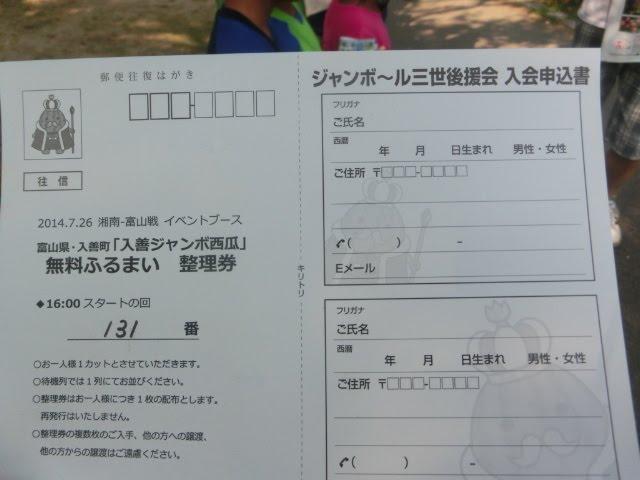 郵便往復はがき
往信
2014.7.26 湘南-富山戦 イベントブース
富山県・入善町「入善ジャンボ西瓜」
無料ふるまい 整理券
◆16:00 スタートの回
131 番
○お一人様1カットとさせていただきます。
○待機列では1列にてお並びください。
○整理券はお一人様につき1枚の配布とします。
再発行はいたしません。
○整理券の複数枚のご入手、他の方への譲渡、
他の方からの譲渡はご遠慮ください。
キリトリ
ジャンボ~ル三世後援会 入会申込書
フリガナ
ご氏名
西暦
年 月 日生まれ 男性・女性
ご住所 〒 -
( ) -
Eメール
フリガナ
ご氏名
西暦
年 月 日生まれ 男性・女性
ご住所 〒 -
( ) -